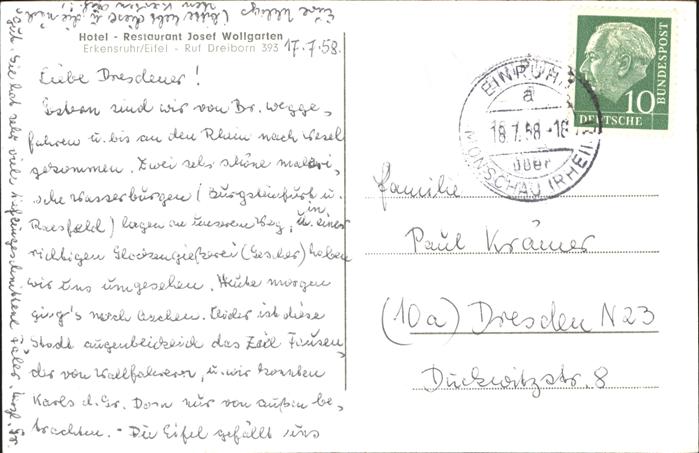 Hotel - Restaurant Josef Wollgarten
Erkensruhr/Eifel - Ruf Dreiborn 393
17.7.58.
Liebe Dresdener!
Gestern sind wir von Br. wegge-
fahren u. bis an den Rhein nach Wesel
gekommen. Zwei sehr schöne maleri-
sche Wasserburgen (Burgsteinfurt u.
Raesfeld) lagen an unserem Weg, u. in einer
richtigen Glockengießerei (Gescher) haben
wir uns umgesehen. Heute morgen
ging's nach Aachen. Leider ist diese
Stadt augenblicklich das Ziel Tausen-
der von Wallfahrern, u. wir konnten
Karls d. Gr. Dom nur von außen be-
trachten. - Die Eifel gefällt uns
gut. Sie hat sehr viele tiefeingeschnittene Täler. Herzl. Gr.
Eure
EINRUHR
a
18.7.58.-18
über
MONSCHAU (RHEINL)
10
DEUTSCHE
BUNDESPOST
Familie
Paul Krämer
(10a) Dresden N23
Duckwitzstr. 8